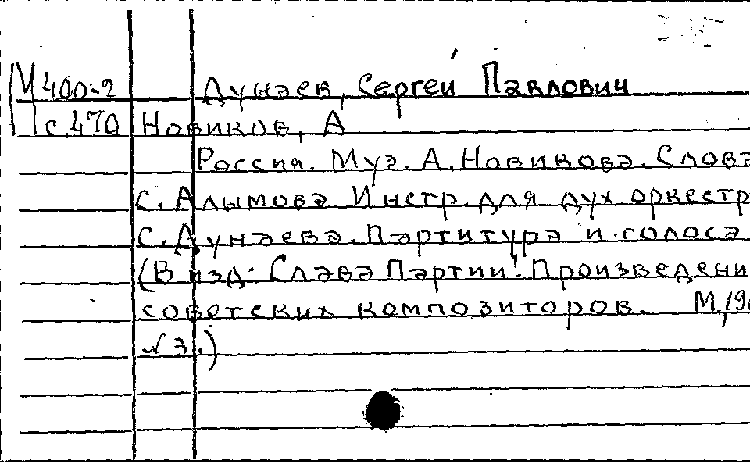 М 400-2 Дунаев, Сергей Павлович
с.470 Новиков, А
Россия. Муз. А. Новикова. Слова
С. Алымова Инстр. для дух оркестр
С. Дунаева. Партитура и голоса
(В изд: Слава Партии! Произведени
советских композиторов. М, 19
№ 3.)